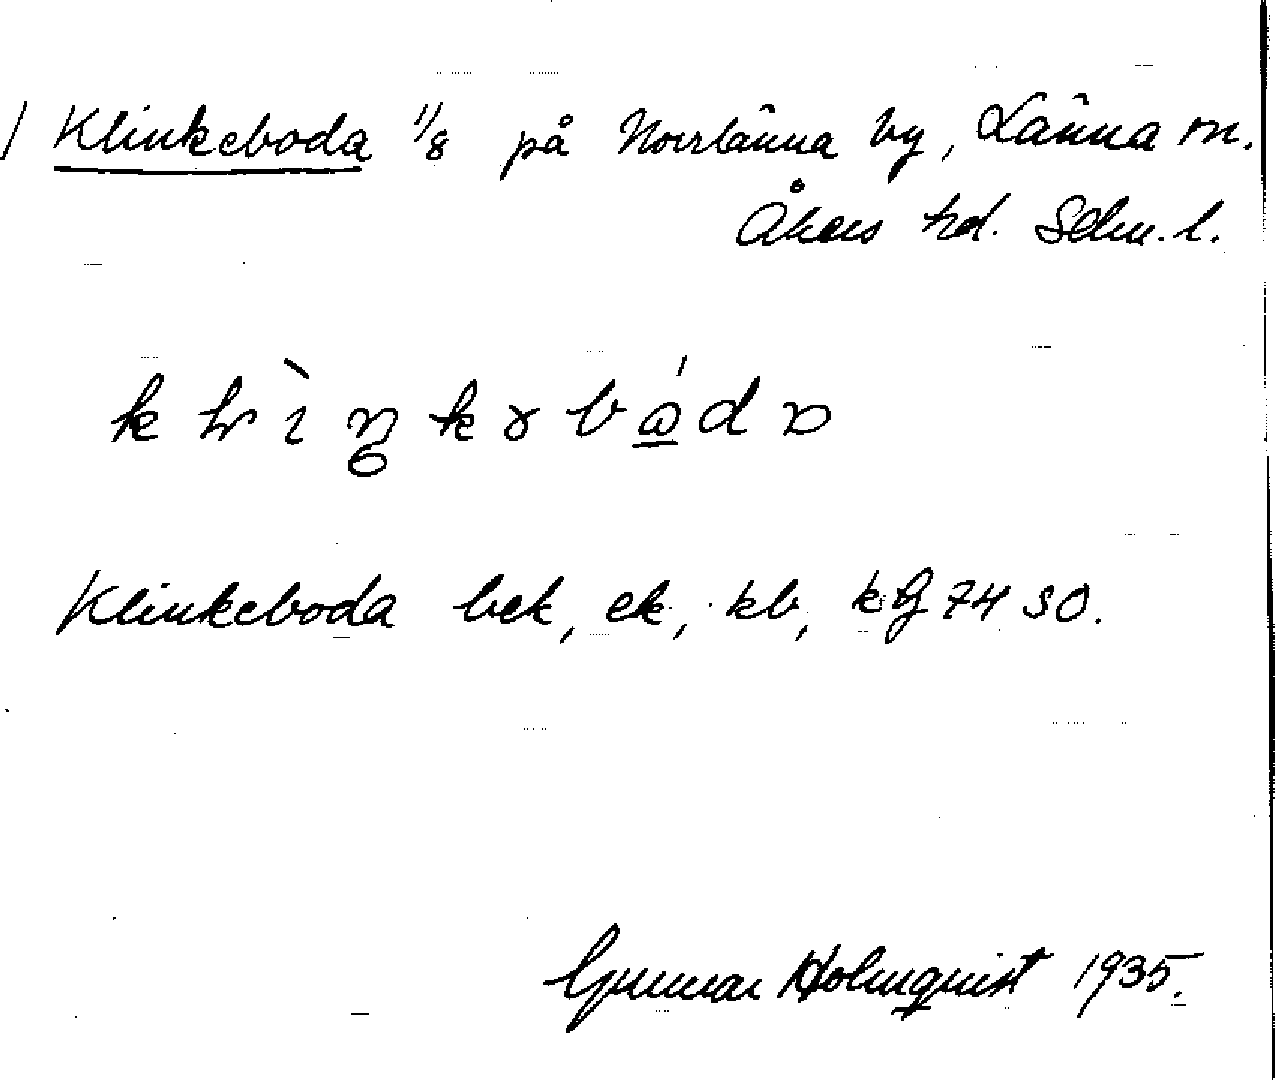 / Klinkeboda 1/8 på Norrlänna by, Länna sn.
Åkers hd. Södm. l.
Klinkeboda bek, ek, kb, kbg 74 SO.
Gunnar Holmquist 1935.